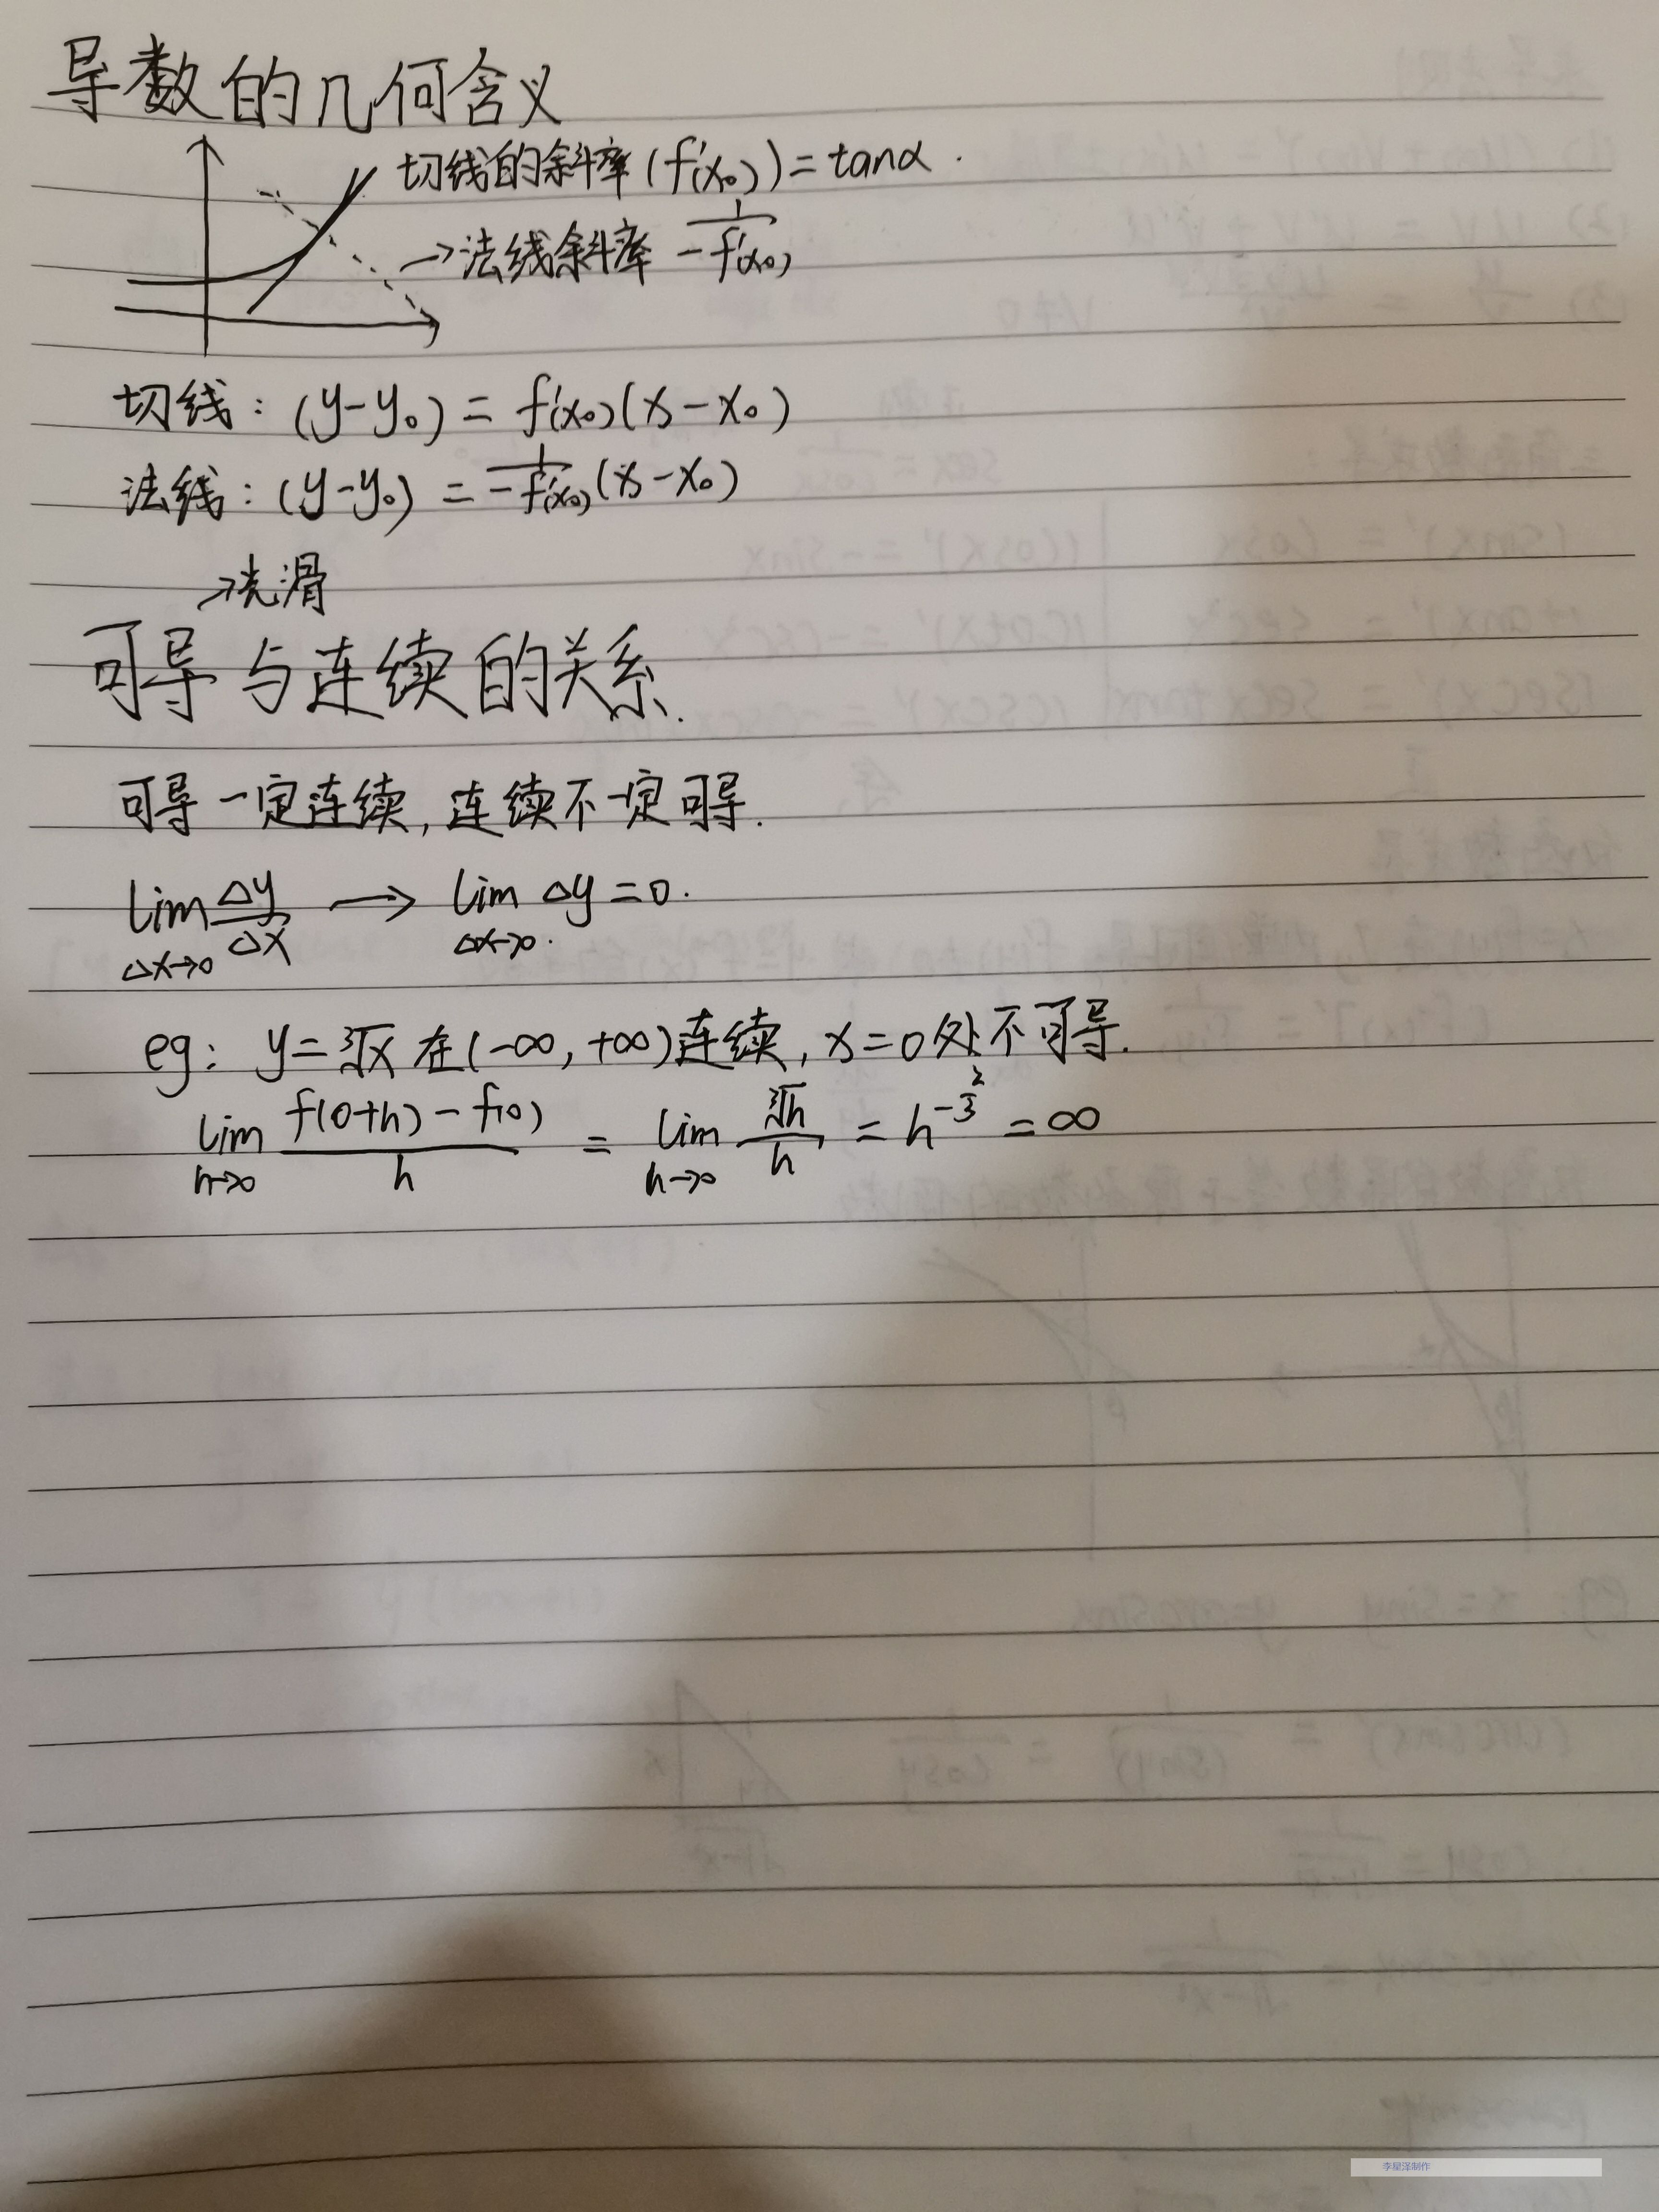 导数的几何含义
切线的斜率(f'(x₀))=tanα.
→法线斜率 1/-f'(x₀)
切线:(y-y₀)=f'(x₀)(x-x₀)
法线:(y-y₀)=1/-f'(x₀)(x-x₀)
→光滑
可导与连续的关系.
可导一定连续,连续不一定可导.
lim Δx→0 Δy/Δx → lim Δx→0 Δy=0.
eg: y=∛x 在(-∞,+∞)连续,x=0处不可导.
lim h→0 f(0+h)-f(0)/h = lim h→0 ∛h/h = h^(-2/3) = ∞
李星泽制作